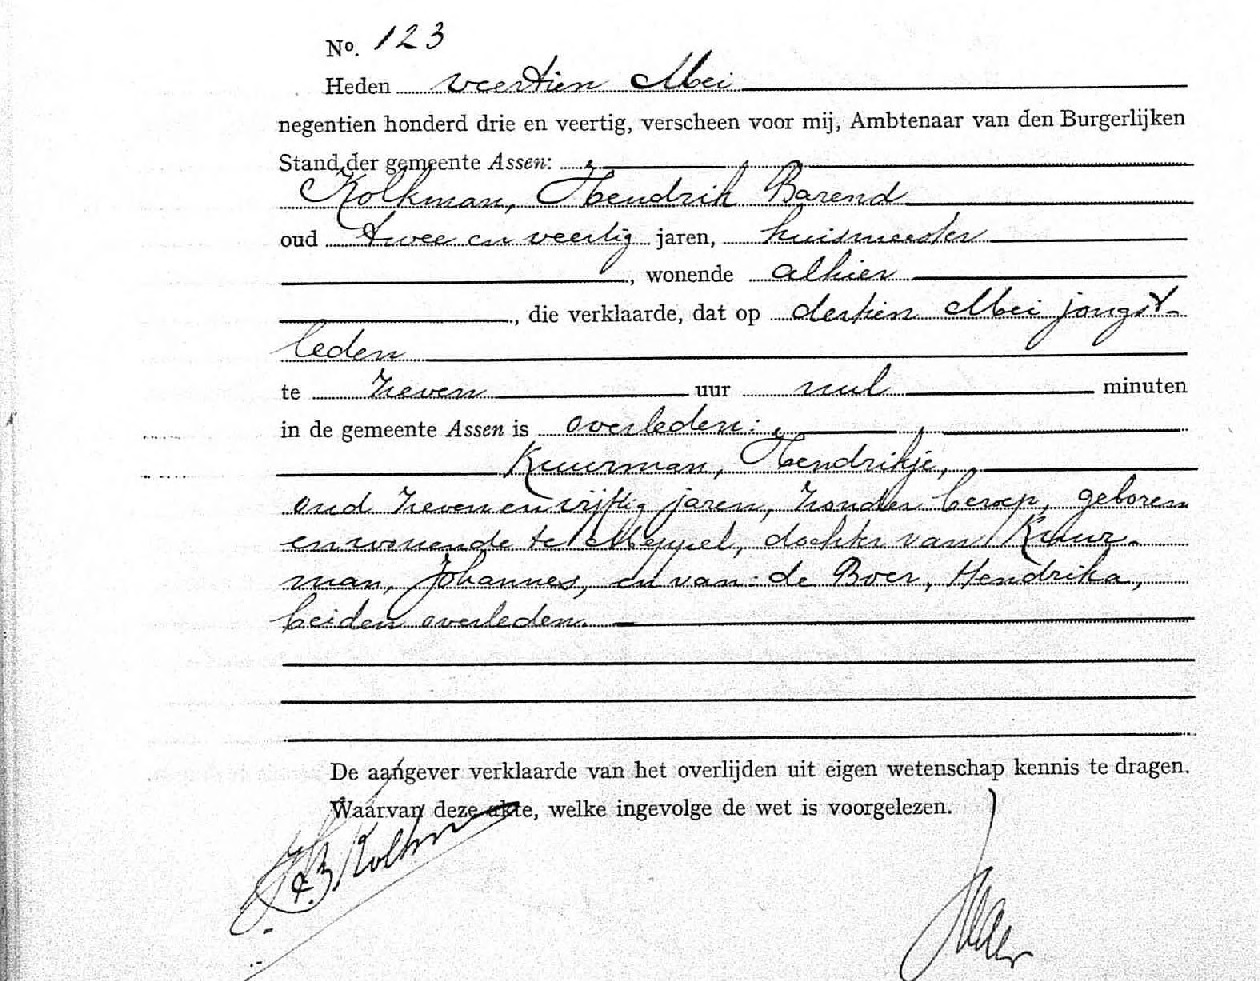 No. 123
Heden veertien Mei
negentien honderd drie en veertig, verscheen voor mij, Ambtenaar van den Burgerlijken
Stand der gemeente Assen:
Kolkman, Hendrik Barend
oud twee en veertig jaren, huismeester
, wonende alhier
, die verklaarde, dat op dertien Mei jongst-
leden
te zeven uur nul minuten
in de gemeente Assen is overleden:
Kuurman, Hendrikje,
oud zeven en vijftig jaren, zonder beroep, geboren
en wonende te Meppel, dochter van Kuur-
man, Johannes, en van: de Boer, Hendrika,
beiden overleden.
De aangever verklaarde van het overlijden uit eigen wetenschap kennis te dragen.
Waarvan deze akte, welke ingevolge de wet is voorgelezen.
H.B. Kolkman